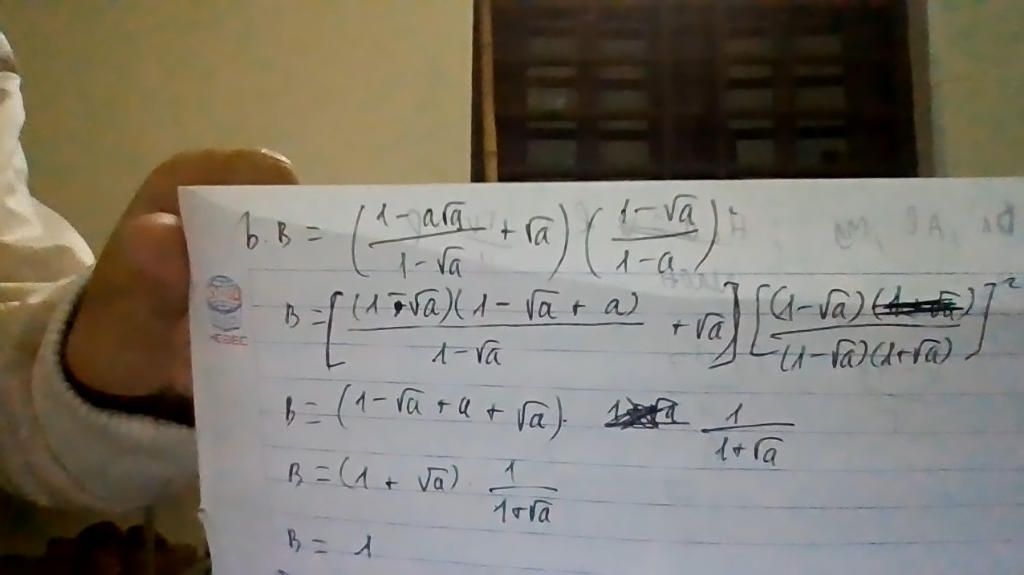 b. B = ( (1 - a√a)/(1 - √a) + √a ) ( (1 - √a)/(1 - a) )²
B = [ (1 - √a)(1 - √a + a)/(1 - √a) + √a ] [ (1 - √a)/((1 - √a)(1 + √a)) ]²
B = (1 - √a + a + √a) . 1/(1 + √a)
B = (1 + √a) . 1/(1 + √a)
B = 1